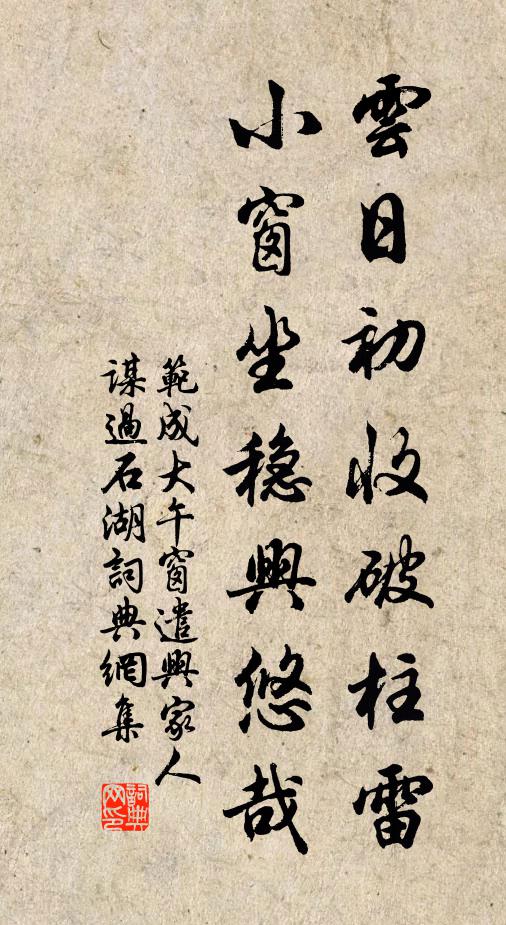 雲日初收破柱雷
小窗坐穩興悠哉
範成大午窗遣興家人
謀過石湖詞典網集
詞典网印